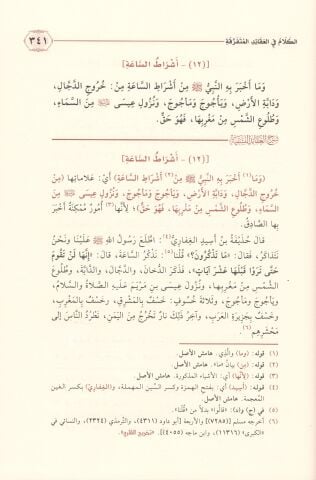 الكَلَامُ فِي العَقَائِدِ المُتَفَرِّقَةِ ٣٤١
[(١٢) - أَشْرَاطُ السَّاعَةِ]
وَمَا أَخْبَرَ بِهِ النَّبِيُّ ﷺ مِنْ أَشْرَاطِ السَّاعَةِ مِنْ: خُرُوجِ الدَّجَّالِ،
وَدَابَّةِ الأَرْضِ، وَيَأْجُوجَ وَمَأْجُوجَ، وَنُزُولِ عِيسَى ﷺ مِنَ السَّمَاءِ،
وَطُلُوعِ الشَّمْسِ مِنْ مَغْرِبِهَا، فَهُوَ حَقٌّ.
[(١٢) - أَشْرَاطُ السَّاعَةِ]
(وَمَا)(١) أَخْبَرَ بِهِ النَّبِيُّ ﷺ مِنْ(٢) أَشْرَاطِ السَّاعَةِ) أَيْ: عَلَامَاتِهَا (مِنْ
خُرُوجِ الدَّجَّالِ، وَدَابَّةِ الأَرْضِ، وَيَأْجُوجَ وَمَأْجُوجَ، وَنُزُولِ عِيسَى ﷺ مِنَ
السَّمَاءِ، وَطُلُوعِ الشَّمْسِ مِنْ مَغْرِبِهَا، فَهُوَ حَقٌّ)؛ لِأَنَّهَا(٣) أُمُورٌ مُمْكِنَةٌ أَخْبَرَ
بِهَا الصَّادِقُ.
قَالَ حُذَيْفَةُ بْنُ أَسِيدٍ الغِفَارِيُّ(٤): اطَّلَعَ رَسُولُ اللهِ ﷺ عَلَيْنَا وَنَحْنُ
نَتَذَاكَرُ، فَقَالَ: «مَا تَذْكُرُونَ؟» قُلْنَا(٥): نَذْكُرُ السَّاعَةَ، قَالَ: «إِنَّهَا لَنْ تَقُومَ
حَتَّى تَرَوْا قَبْلَهَا عَشْرَ آيَاتٍ»، فَذَكَرَ الدُّخَانَ، وَالدَّجَّالَ، وَالدَّابَّةَ، وَطُلُوعَ
الشَّمْسِ مِنْ مَغْرِبِهَا، وَنُزُولَ عِيسَى بْنِ مَرْيَمَ عَلَيْهِ الصَّلَاةُ وَالسَّلَامُ،
وَيَأْجُوجَ وَمَأْجُوجَ، وَثَلَاثَةَ خُسُوفٍ: خَسْفٌ بِالمَشْرِقِ، وَخَسْفٌ بِالمَغْرِبِ،
وَخَسْفٌ بِجَزِيرَةِ العَرَبِ، وَآخِرُ ذَلِكَ نَارٌ تَخْرُجُ مِنَ اليَمَنِ، تَطْرُدُ النَّاسَ إِلَى
مَحْشَرِهِمْ(٦).
(١) قوله: (وما) والذي. هامش الأصل.
(٢) قوله: (مِن) بيانُ «ما». هامش الأصل.
(٣) قوله: (لِأَنَّهَا) أي: الأشياء المذكورة. هامش الأصل.
(٤) قوله: (أَسِيد) أي: بفتح الهمزة وكسر السِّين المهملة، و(الغِفَاري) بكسر الغين
المعجمة. هامش الأصل.
(٥) في (ج) و(د): «قالوا» بدلاً من «قُلْنَا».
(٦) أخرجه مسلم [(٧٢٨٥)] والأربعة [أبو داود (٤٣١١)، والترمذي (٢٣٢٤)، والنسائي في
«الكبرى» (١١٣١٦)، وابن ماجه (٤٠٥٥)]. «تخريج الفروع».